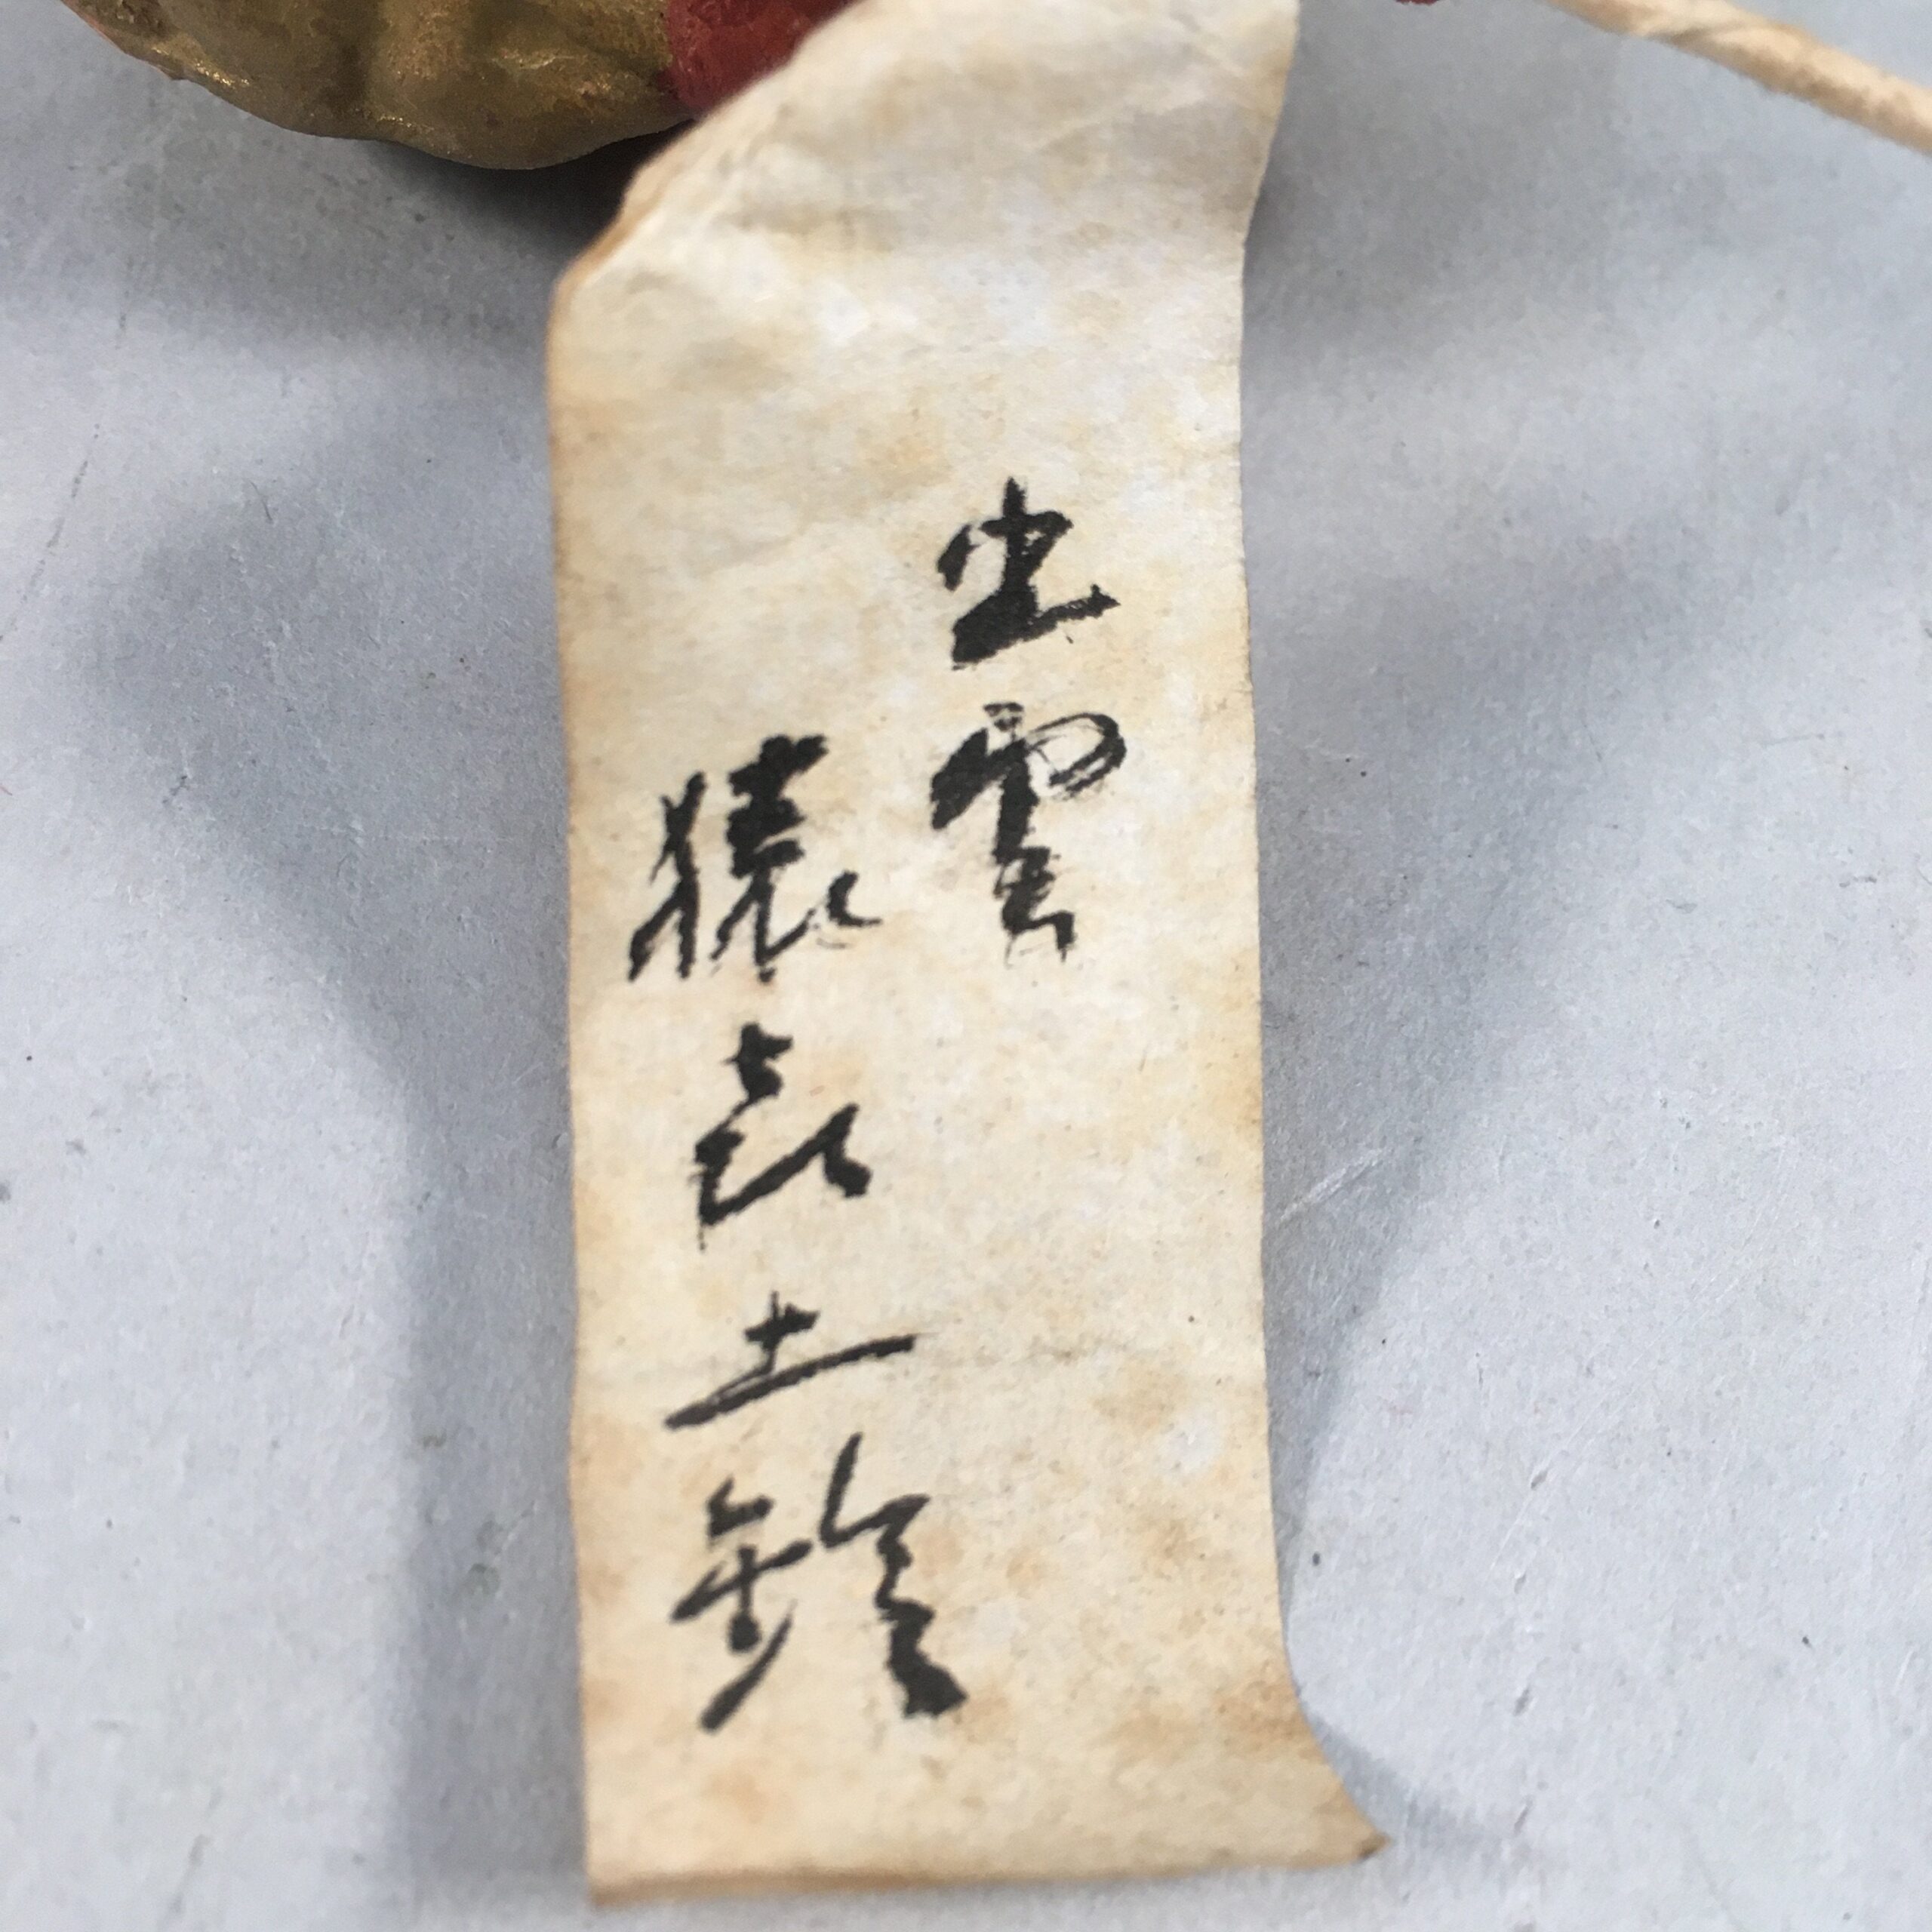 出雲
猿 土鈴